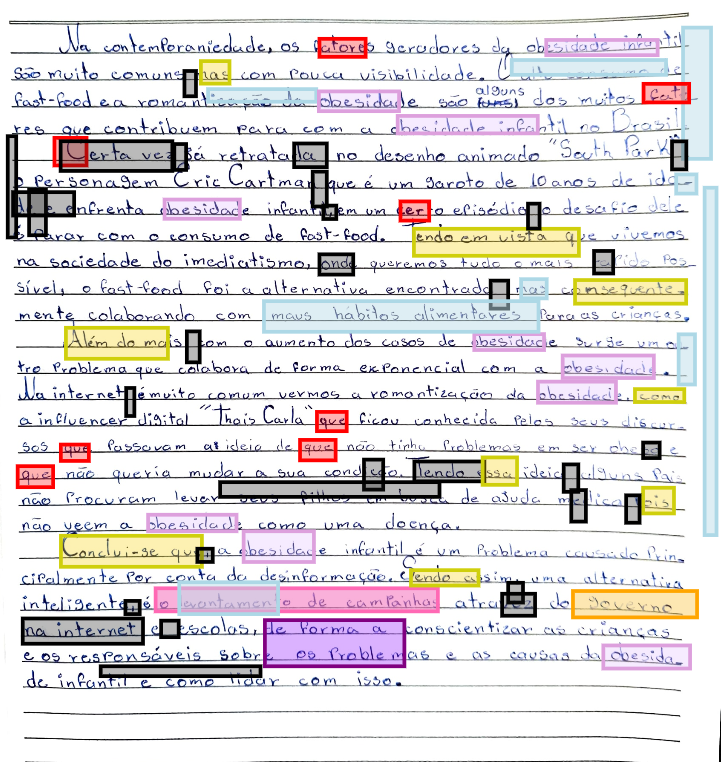 Na contemporaniedade, os fatores geradores da obesidade infantil
são muito comuns mas com pouca visibilidade. O alto consumo de
fast-food e a romantização da obesidade são alguns dos muitos fato-
res que contribuem para com a obesidade infantil no Brasil.
Certa vez já retratada no desenho animado "South Park"
o personagem Eric Cartman que é um garoto de 10 anos de ida-
de e enfrenta obesidade infantil, em um certo episédio o desafio dele
é parar com o consumo de fast-food. Tendo em vista que vivemos
na sociedade do imediatismo, onde queremos tudo o mais rápido pos
sível, o fast-food foi a alternativa encontrada mas consequente-
mente colaborando com maus hábitos alimentares para as crianças.
Além do mais com o aumento dos casos de obesidade surge um ou-
tro problema que colabora de forma exponencial com a obesidade.
Na internet é muito comum vermos a romantização da obesidade, como
a influencer digital "Thais Carla" que ficou conhecida pelos seus discur-
sos que passavam a ideia de que não tinha problemas em ser obesa e
que não queria mudar a sua condição. Tendo essa ideia alguns pais
não procuram levar seus filhos em busca de ajuda médica pois
não veem a obesidade como uma doença.
Conclui-se que a obesidade infantil é um problema causado prin-
cipalmente por conta da desinformação. Sendo assim, uma alternativa
inteligente é o levantamento de campanhas através do governo
na internet e escolas, de forma a conscientizar as crianças
e os responsáveis sobre os problemas e as causas da obesida-
de infantil e como lidar com isso.